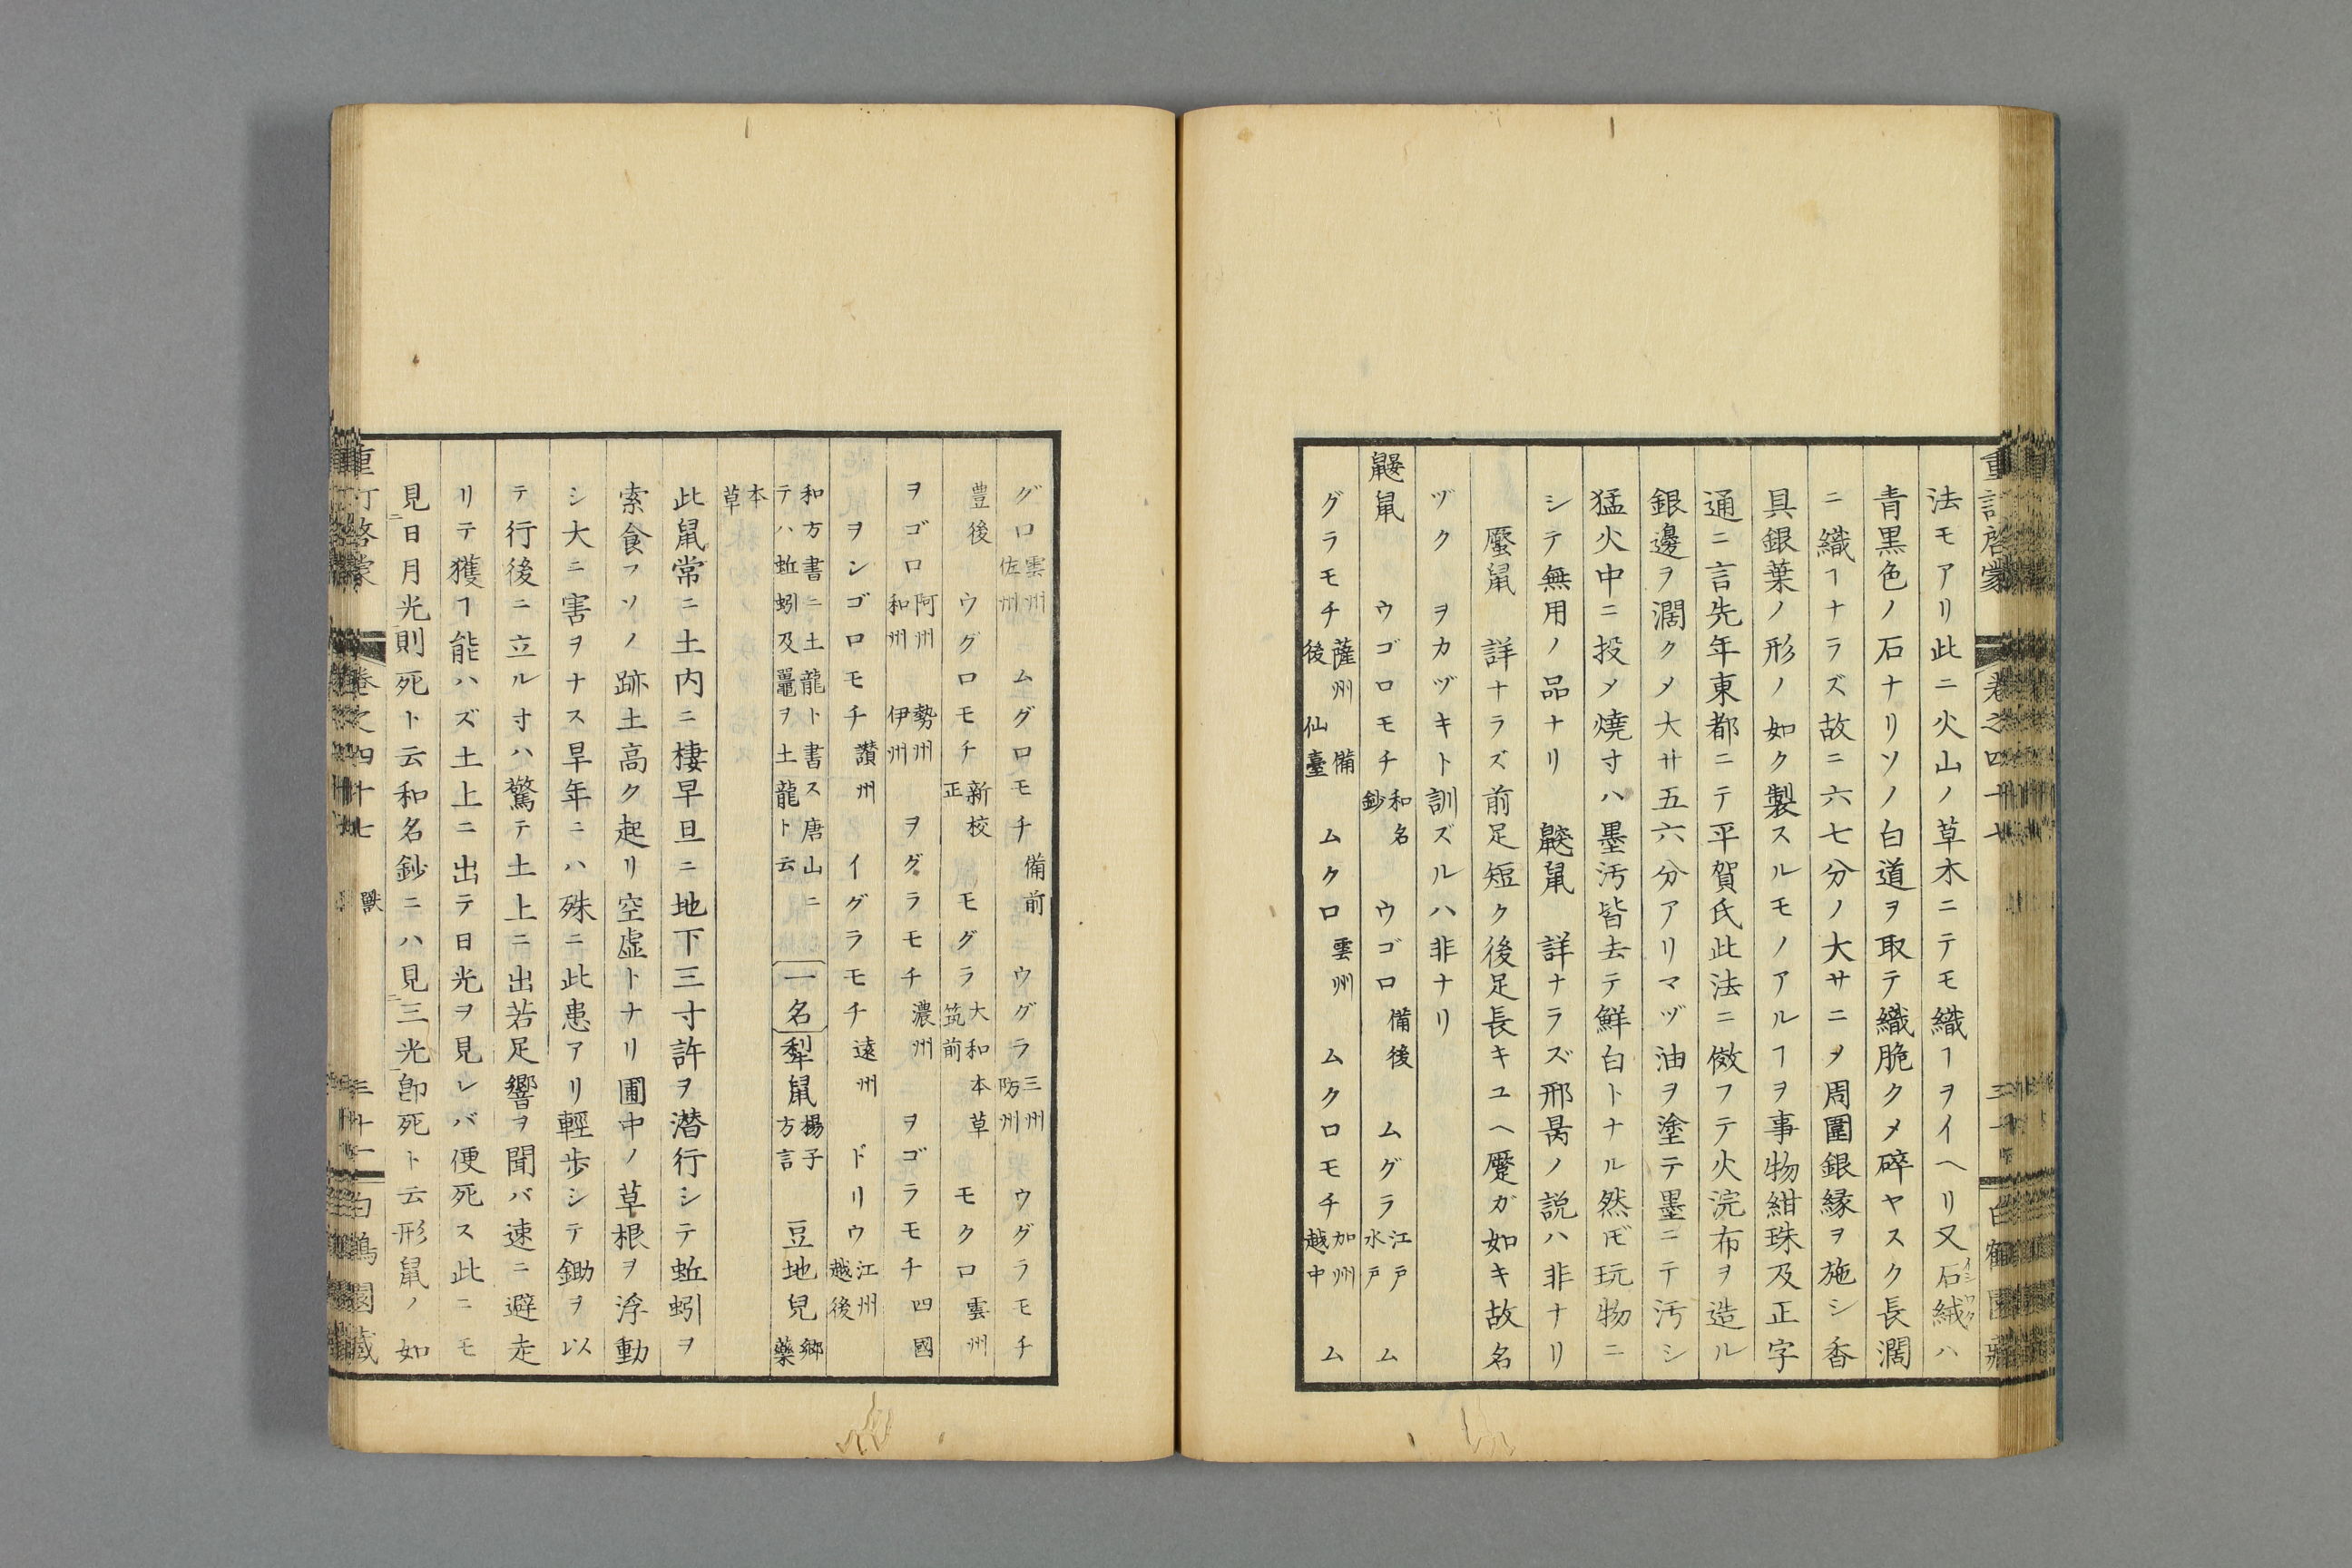 法モアリ此ニ火山ノ草木ニテモ織ヿヲイヘリ又石絨ハ
青黒色ノ石ナリソノ白道ヲ取テ織脆クメ碎ヤスク長濶
ニ織ヿナラズ故ニ六七分ノ大サニメ周圍銀縁ヲ施シ香
具銀葉ノ形ノ如ク製スルモノアルヿヲ事物紺珠及正字
通ニ言先年東都ニテ平賀氏此法ニ傚フテ火浣布ヲ造ル
銀邊ヲ濶クメ大サ五六分アリマヅ油ヲ塗テ墨ニテ汚シ
猛火中ニ投メ燒寸ハ墨汚皆去テ鮮白トナル然𪜈玩物ニ
シテ無用ノ品ナリ 鼵鼠 詳ナラズ邢昺ノ説ハ非ナリ
蟨鼠 詳ナラズ前足短ク後足長キユヘ蹷ガ如キ故名
ヅク ヲカヅキト訓ズルハ非ナリ
鼹鼠 ウゴロモチ 和名鈔 ウゴロ 備後 ムグラ 江戸 水戸 ム
グラモチ 薩州 備後 仙臺 ムクロ 雲州 ムクロモチ 加州 越中 ム
グロ 雲州 佐州 ムグロモチ 備前 ウグラ 三州 防州 ウグラモチ
豊後 ウグロモチ 新校正 モグラ 大和本草 筑前 モクロ 雲州
ヲゴロ 阿州 和州 勢州 伊州 ヲグラモチ 濃州 ヲゴラモチ 四國
ヲンゴロモチ 讃州 イグラモチ 遠州 ドリウ 江州 越後
和方書ニ土龍ト書ス唐山ニテハ蚯蚓及鼉ヲ土龍ト云 一名 犁鼠 楊子方言 豆地兒 郷藥
本草
此鼠常ニ土内ニ棲早旦ニ地下三寸許ヲ潜行シテ蚯蚓ヲ
索食フソノ跡土高ク起リ空虚トナリ圃中ノ草根ヲ浮動
シ大ニ害ヲナス旱年ニハ殊ニ此患アリ輕歩シテ鋤ヲ以
テ行後ニ立ル寸ハ驚テ土上ニ出若足響ヲ聞バ速ニ避走
リテ獲ヿ能ハズ土上ニ出テ日光ヲ見レバ便死ス此ニモ
見日月光則死ト云和名鈔ニハ見三光即死ト云形鼠ノ如
重訂啓蒙 卷之四十七 獸